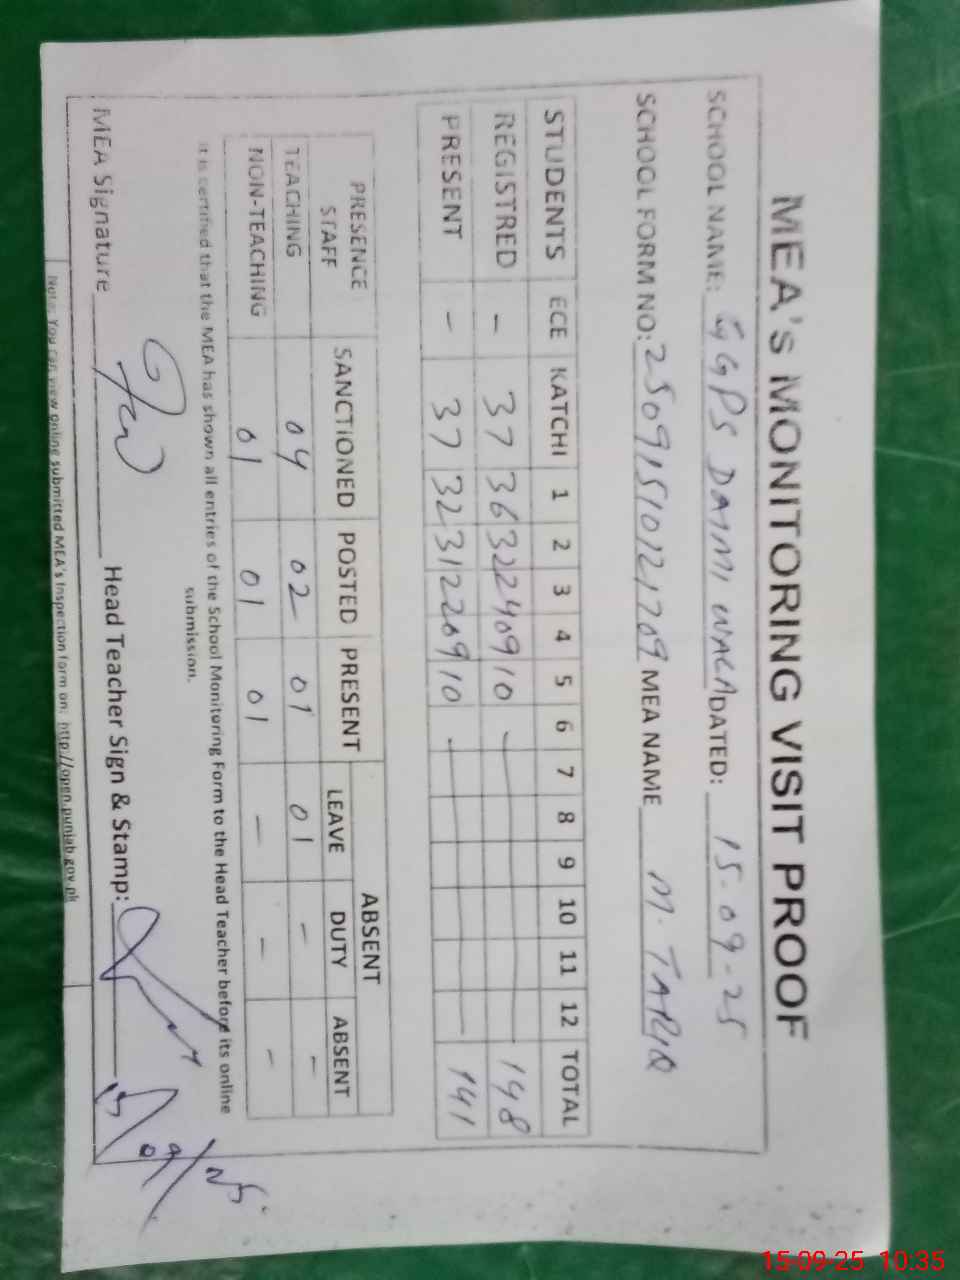 MEA's MONITORING VISIT PROOF
SCHOOL NAME: GGPS DAIMI WALA DATED: 15-09-25
SCHOOL FORM NO: 25091510121709 MEA NAME M. TARIQ
STUDENTS ECE KATCHI 1 2 3 4 5 6 7 8 9 10 11 12 TOTAL
REGISTRED - 37 36 32 24 09 10 148
PRESENT - 37 32 31 22 09 10 141
PRESENCE STAFF SANCTIONED POSTED PRESENT ABSENT
LEAVE DUTY ABSENT
TEACHING 04 02 01 01 - -
NON-TEACHING 01 01 01 - - -
It is certified that the MEA has shown all entries of the School Monitoring Form to the Head Teacher before its online
submission.
MEA Signature Head Teacher Sign & Stamp:
15/09/25
Note: You can view online submitted MEA's Inspection form on: http://open.punjab.gov.pk
15-09-25 10:35